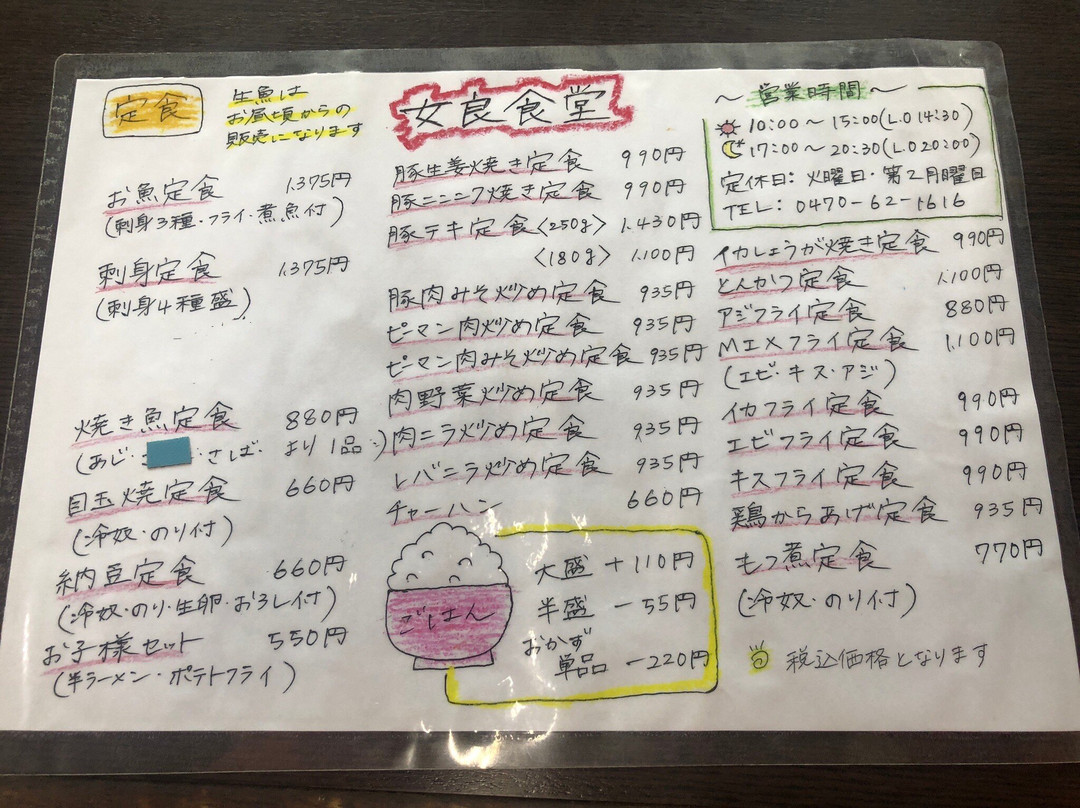 定食
生魚は
お昼頃からの
販売になります
お魚定食 1.375円
(刺身3種・フライ・煮魚付)
刺身定食 1.375円
(刺身4種盛)
焼き魚定食 880円
(あじ・ ・さば・ より1品)
目玉焼定食 660円
(冷奴・のり付)
納豆定食 660円
(冷奴・のり・生卵・おろし付)
お子様セット 550円
(半ラーメン・ポテトフライ)
女良食堂
豚生姜焼き定食 990円
豚ニンニク焼き定食 990円
豚テキ定食<250g> 1.430円
<180g> 1.100円
豚肉みそ炒め定食 935円
ピーマン肉炒め定食 935円
ピーマン肉みそ炒め定食 935円
肉野菜炒め定食 935円
肉ニラ炒め定食 935円
レバニラ炒め定食 935円
チャーハン 660円
ごはん
大盛 +110円
半盛 -55円
おかず
単品 -220円
〜 営業時間 〜
10:00〜15:00(L.O 14:30)
17:00〜20:30(L.O 20:00)
定休日: 火曜日・第2月曜日
TEL: 0470-62-1616
イカしょうが焼き定食 990円
とんかつ定食 1.100円
アジフライ定食 880円
MIXフライ定食 1.100円
(エビ・キス・アジ)
イカフライ定食 990円
エビフライ定食 990円
キスフライ定食 990円
鶏からあげ定食 935円
もつ煮定食 770円
(冷奴・のり付)
税込価格となります